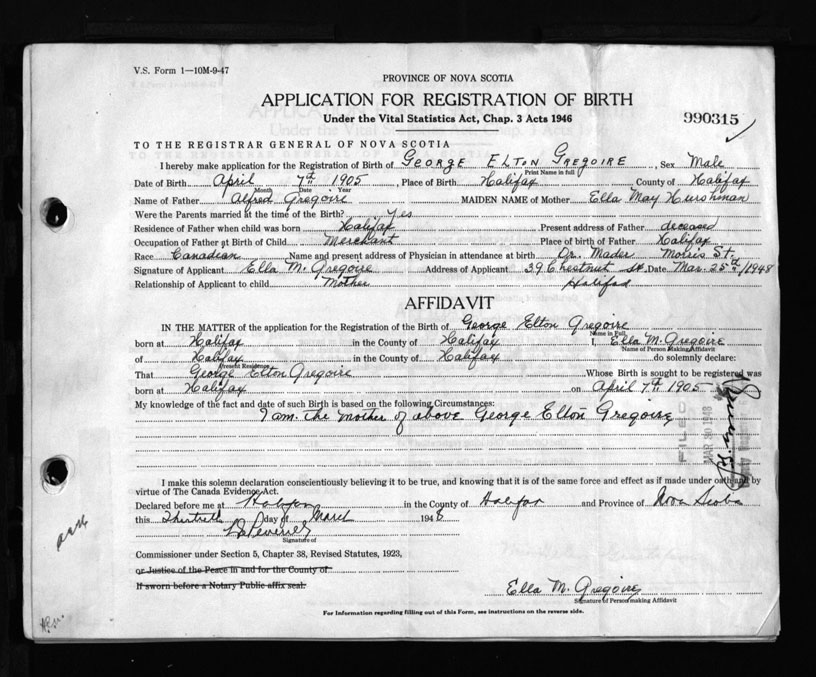 V.S. Form 1—10M-9-47
PROVINCE OF NOVA SCOTIA
APPLICATION FOR REGISTRATION OF BIRTH
Under the Vital Statistics Act, Chap. 3 Acts 1946
990315
TO THE REGISTRAR GENERAL OF NOVA SCOTIA
I hereby make application for the Registration of Birth of George Elton Gregoire, Sex Male
Print Name in full
Date of Birth April 7th 1905, Place of Birth Halifax County of Halifax
Month Date Year
Name of Father Alfred Gregoire MAIDEN NAME of Mother Ella May Hurshman
Were the Parents married at the time of the Birth? Yes
Residence of Father when child was born Halifax Present address of Father deceased
Occupation of Father at Birth of Child Merchant Place of birth of Father Halifax
Race Canadian Name and present address of Physician in attendance at birth Dr. Mader Morris St.
Signature of Applicant Ella M. Gregoire Address of Applicant 39 Chestnut St. Date Mar. 25th/1948
Relationship of Applicant to child Mother Halifax
AFFIDAVIT
IN THE MATTER of the application for the Registration of the Birth of George Elton Gregoire
Name in Full
born at Halifax in the County of Halifax I, Ella M. Gregoire
Name of Person Making Affidavit
of Halifax in the County of Halifax do solemnly declare:
Present Residence
That George Elton Gregoire Whose Birth is sought to be registered was
born at Halifax on April 7th 1905
My knowledge of the fact and date of such Birth is based on the following Circumstances:
I am the mother of above George Elton Gregoire
FILED
MAR 30 1948
I make this solemn declaration conscientiously believing it to be true, and knowing that it is of the same force and effect as if made under oath and by
virtue of The Canada Evidence Act.
Declared before me at Halifax in the County of Halifax and Province of Nova Scotia
this Thirtieth day of March 1948
Signature of
Commissioner under Section 5, Chapter 38, Revised Statutes, 1923,
or Justice of the Peace in and for the County of
If sworn before a Notary Public affix seal.
Ella M. Gregoire
Signature of Person making Affidavit
For Information regarding filling out of this Form, see instructions on the reverse side.